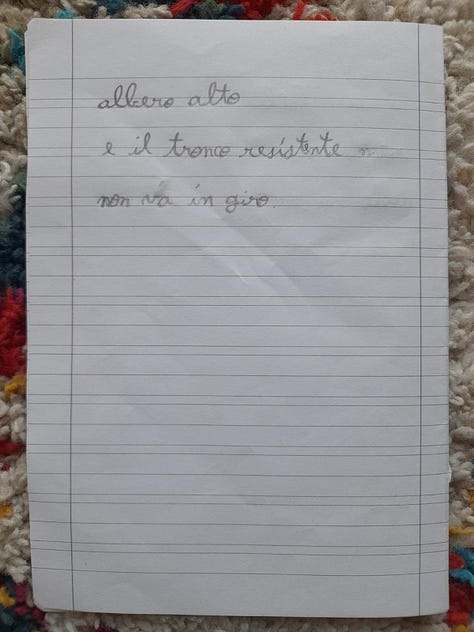 albero alto
e il tronco resistente
non va in giro.